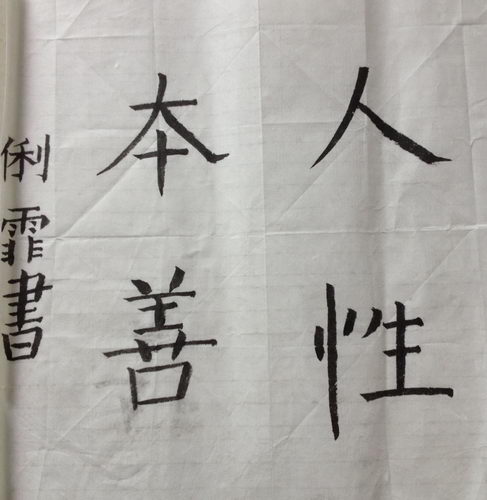 人性
本善
俐霏書